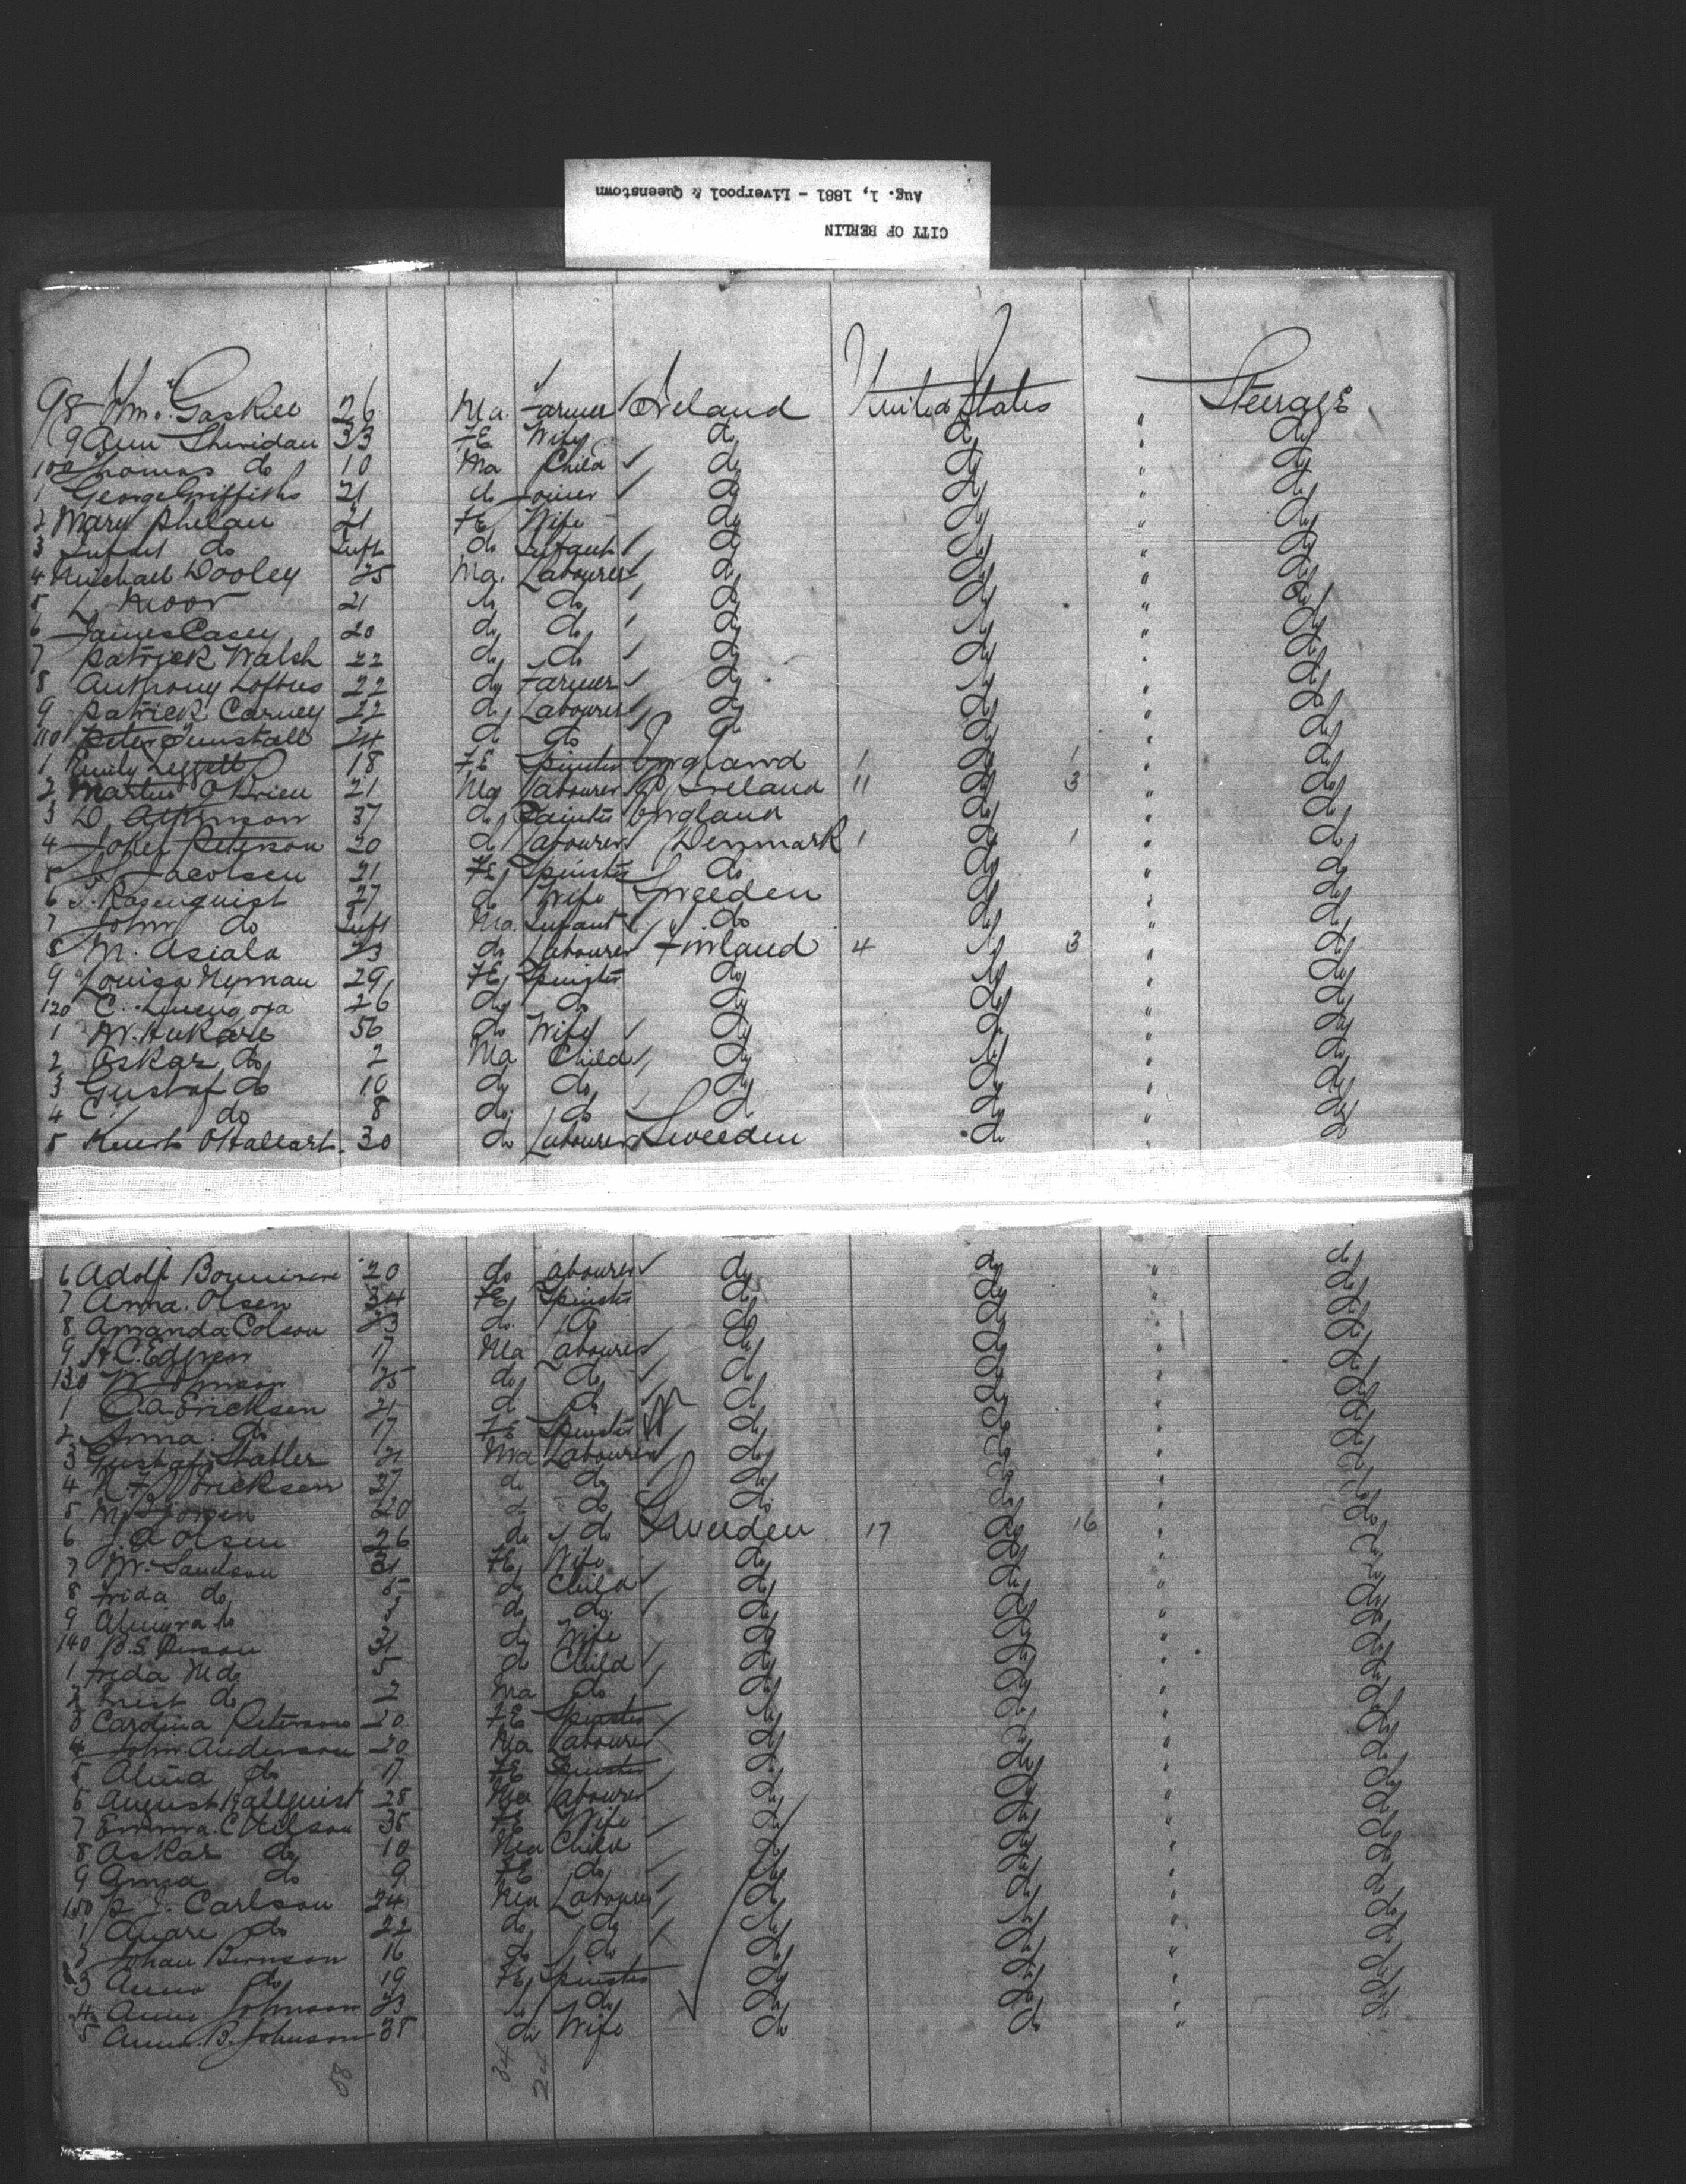 CITY OF BERLIN
Aug. 1, 1881 - Liverpool & Queenstown
98 Wm. Gaskill 26 Ma. Farmer Ireland United States " Steerage
9 Ann Sheridan 33 FE Wife do do " do
100 Thomas do 10 Ma Child do do " do
1 George Griffiths 21 do Joiner do do " do
2 Mary Phelan 21 FE Wife do do " do
3 Infant do Inft do Infant do do " do
4 Michael Dooley 25 Ma. Labourer do do " do
5 L Moor 21 do do do do " do
6 James Casey 20 do do do do " do
7 Patrick Walsh 22 do do do do " do
8 Anthony Loftus 22 do Farmer do do " do
9 Patrick Carney 22 do Labourer do do " do
110 Peter Tunstall 24 do do do do " do
1 Emily Leggett 18 FE Spinster England 1 do 1 " do
2 Martin O'Brien 21 Ma Labourer Ireland 11 do 3 " do
3 D. Atkinson 37 do Painter England do " do
4 John Peterson 20 do Labourer Denmark 1 do 1 " do
5 Jacolsen 21 FE Spinster do do " do
6 Rosenquist 27 do Wife Sweeden do " do
7 John do Inft Ma. Infant do do " do
8 M. Asiala 23 do Labourer Finland 4 do 3 " do
9 Louisa Nyman 29 FE Spinster do do " do
120 C. 26 do do do do " do
1 M. Hukare 36 do Wife do do " do
2 Oskar do 2 Ma Child do do " do
3 Gustaf do 10 do do do do " do
4 C. do 8 do do do do " do
5 30 do Labourer Sweeden do " do
6 Adolf 20 do Labourer do do " do
7 Anna Olsen 24 FE Spinster do do " do
8 Amanda Colson 23 do do do do " do
9 H.C. Edgren 17 Ma Labourer do do " do
130 W Johnson 25 do do do do " do
1 C.A. Ericksen 21 do do do do " do
2 Anna do 17 FE Spinster do do " do
3 Gustaf Stabler 21 Ma Labourer do do " do
4 Ericksen 37 do do do do " do
5 M. 20 do do do do " do
6 J.A Olsen 26 do do Sweeden 17 do 16 " do
7 M. Samlson 31 FE Wife do do " do
8 Frida do 5 do Child do do " do
9 do 3 do do do do " do
140 B.S. Person 31 do Wife do do " do
1 Frida M do 5 do Child do do " do
2 Ernst do 2 Ma do do do " do
3 Carolina Peterson 20 FE Spinster do do " do
4 John Anderson 20 Ma Labourer do do " do
5 Alma do 17 FE Spinster do do " do
6 August Hallquist 28 Ma Labourer do do " do
7 Emma C Nilson 35 FE Wife do do " do
8 Askar do 10 Ma Child do do " do
9 Anna do 9 FE do do do " do
150 P J. Carlson 24 Ma Labourer do do " do
1 do 22 do do do do " do
2 Johan Bernson 16 do do do do " do
3 Anna do 19 FE Spinster do do " do
4 Anna Johnson 23 do do do do " do
5 Anna B. Johnson 38 do Wife do do " do
58 34 24